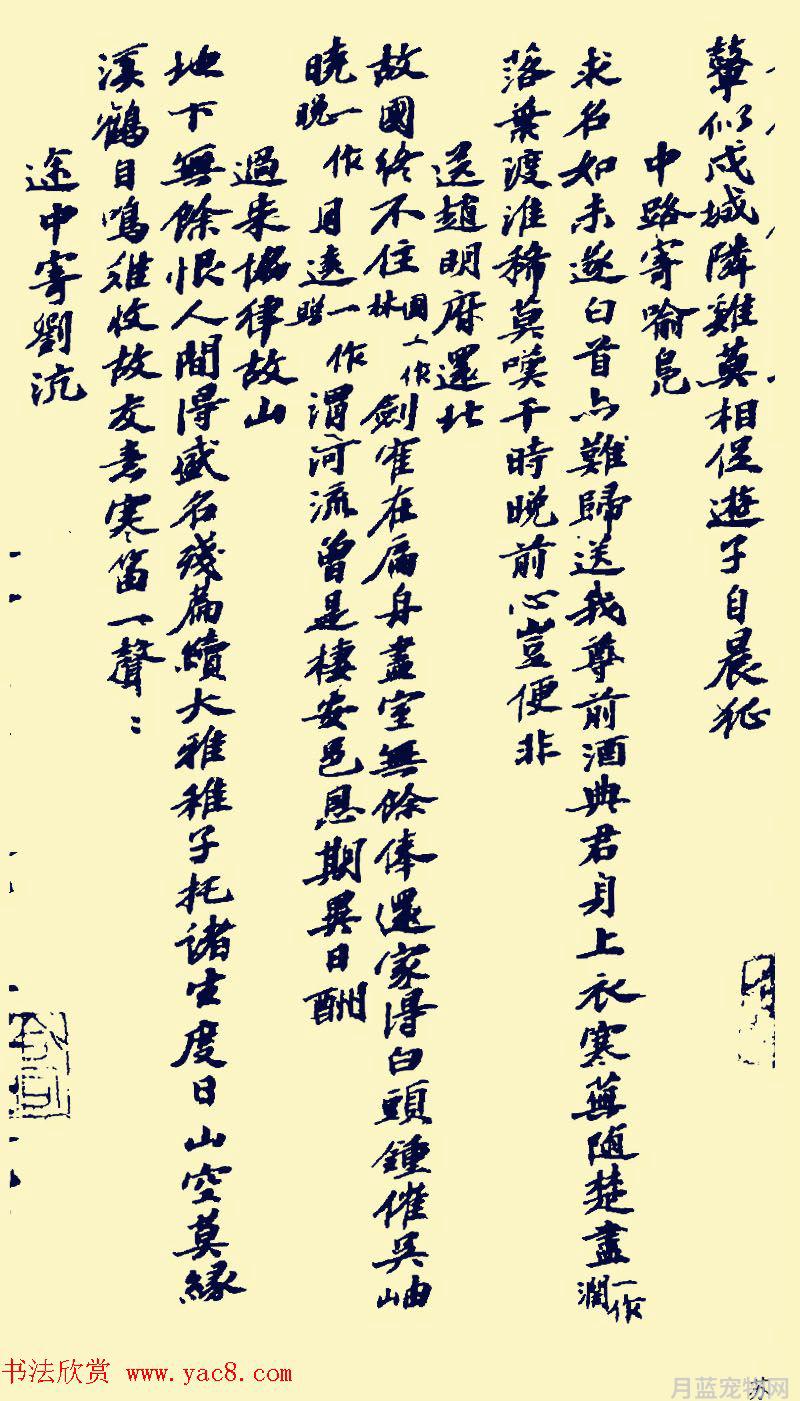 聲似戍城隣雞莫相促遊子自晨征
中路寄喻鳧
求名如未遂白首亦難歸送我尊前酒典君身上衣寒蕪隨楚盡一作澗
落葉渡淮稀莫嘆干時晚前心豈便非
送趙明府還北
故國終不住國一作林劍寉在扁舟盡室無餘俸還家得白頭鍾催吳岫
曉一作晚月遶一作照渭河流曾是棲安邑恩期異日酬
過朱協律故山
地下無餘恨人間得盛名殘篇續大雅稚子托諸生度日山空莫緣
溪鶴自鳴難收故友書寒笛一聲:
途中寄劉沆
书法欣赏 www.yac8.com
月蓝宠物网
苏